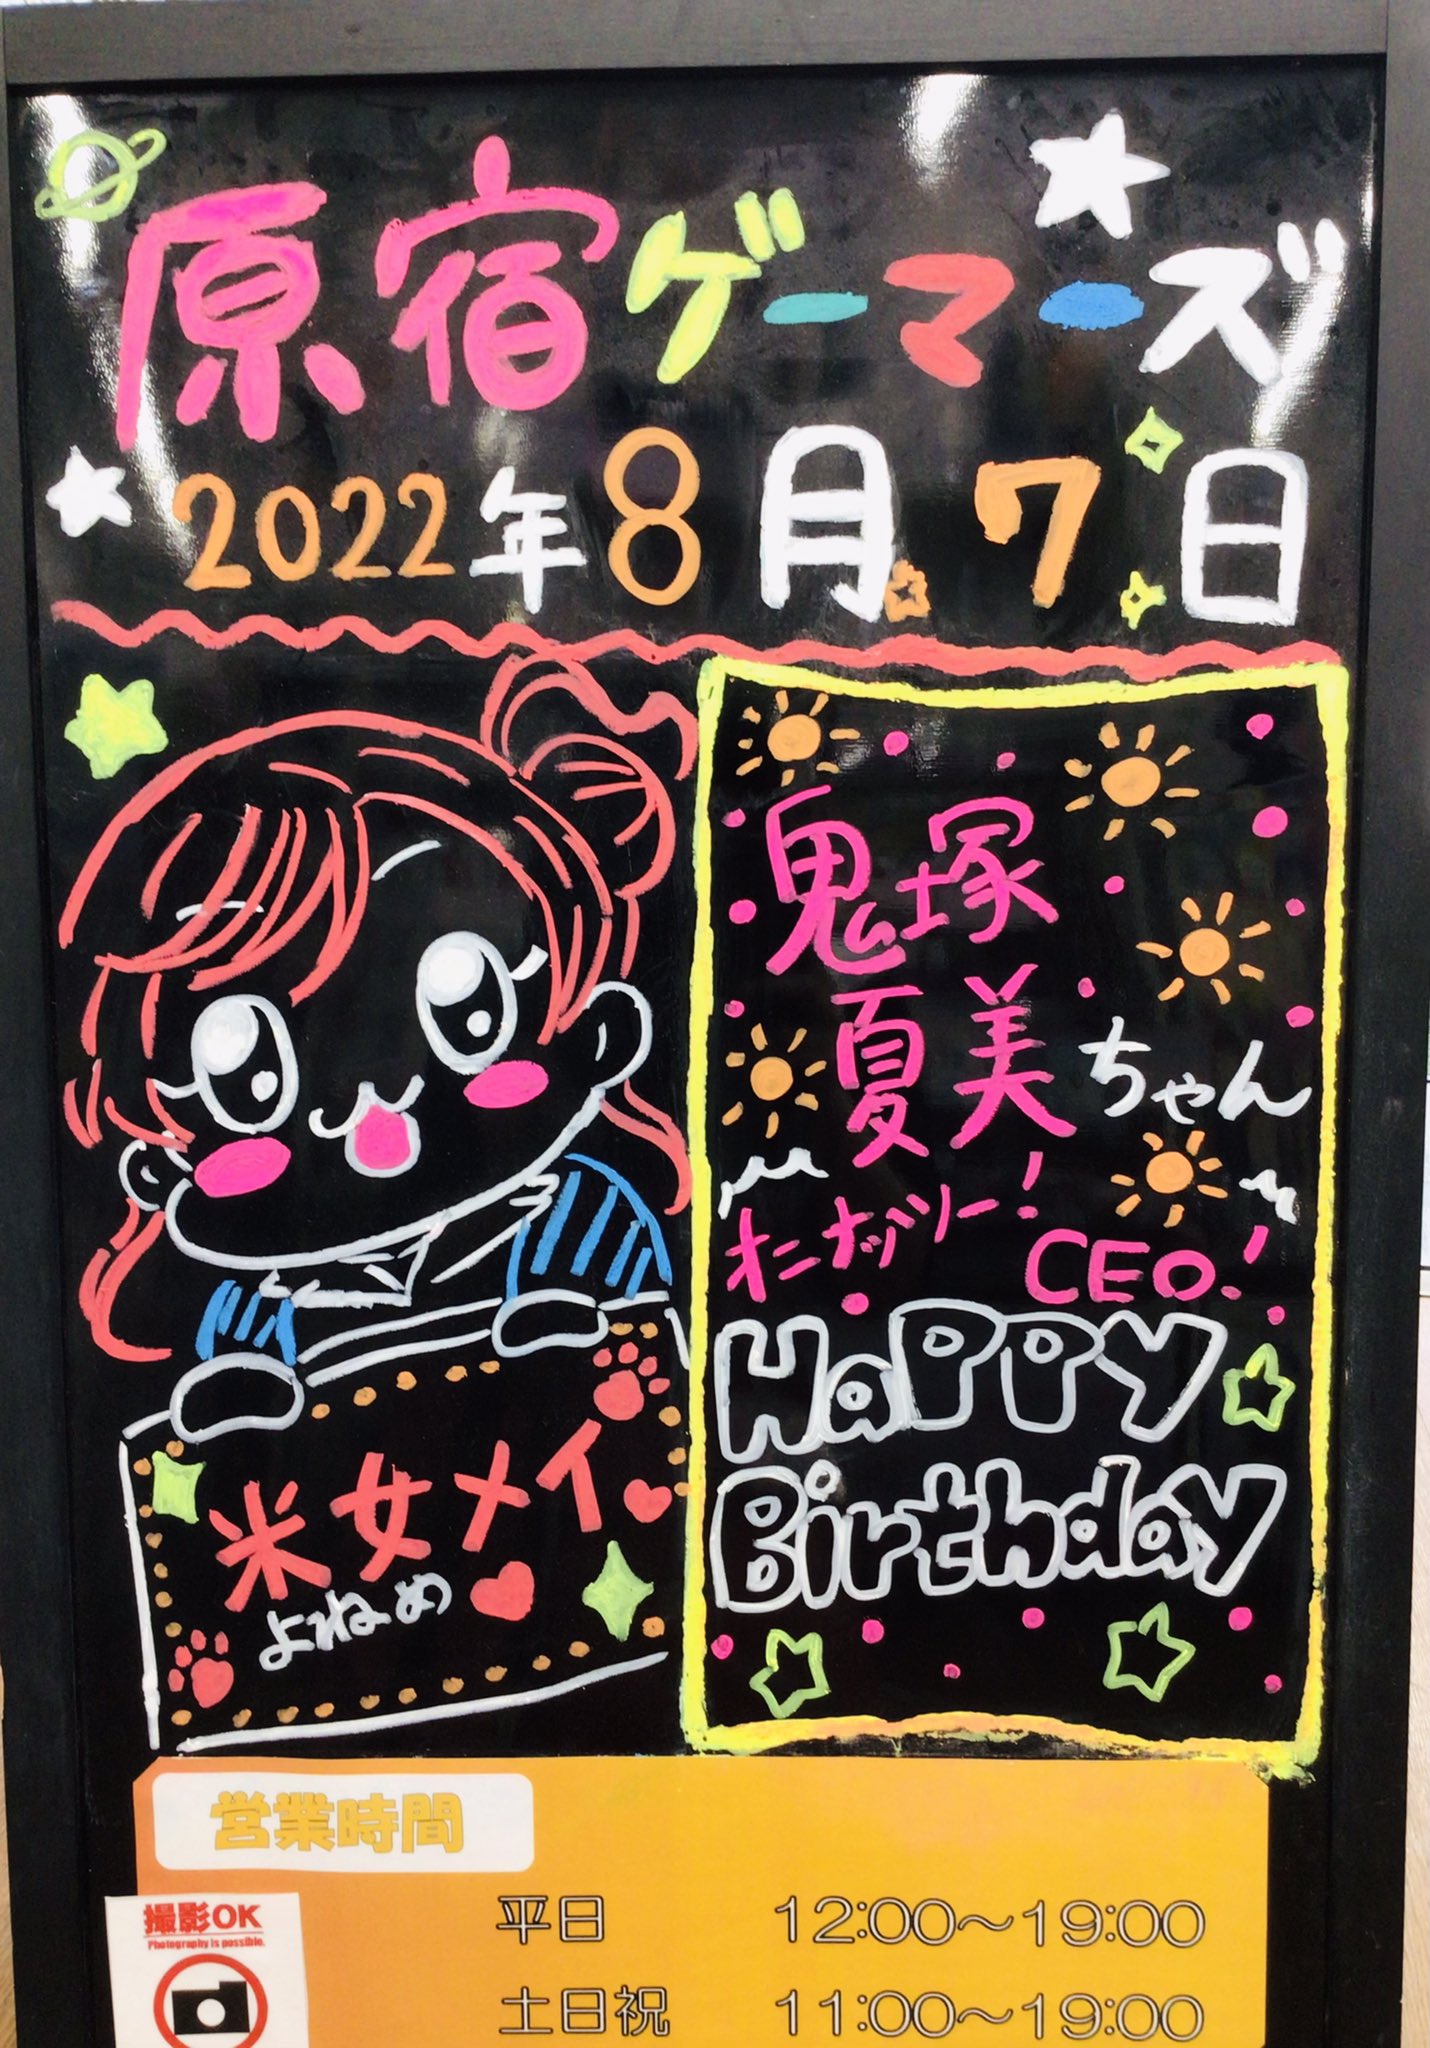 原宿ゲーマーズ
2022年8月7日
鬼塚
夏美ちゃん
オニナッツー!
CEO!
HaPPY
Birthday
米女メイ
よねめ
営業時間
平日 12:00～19:00
土日祝 11:00～19:00
撮影OK
Photography is possible.